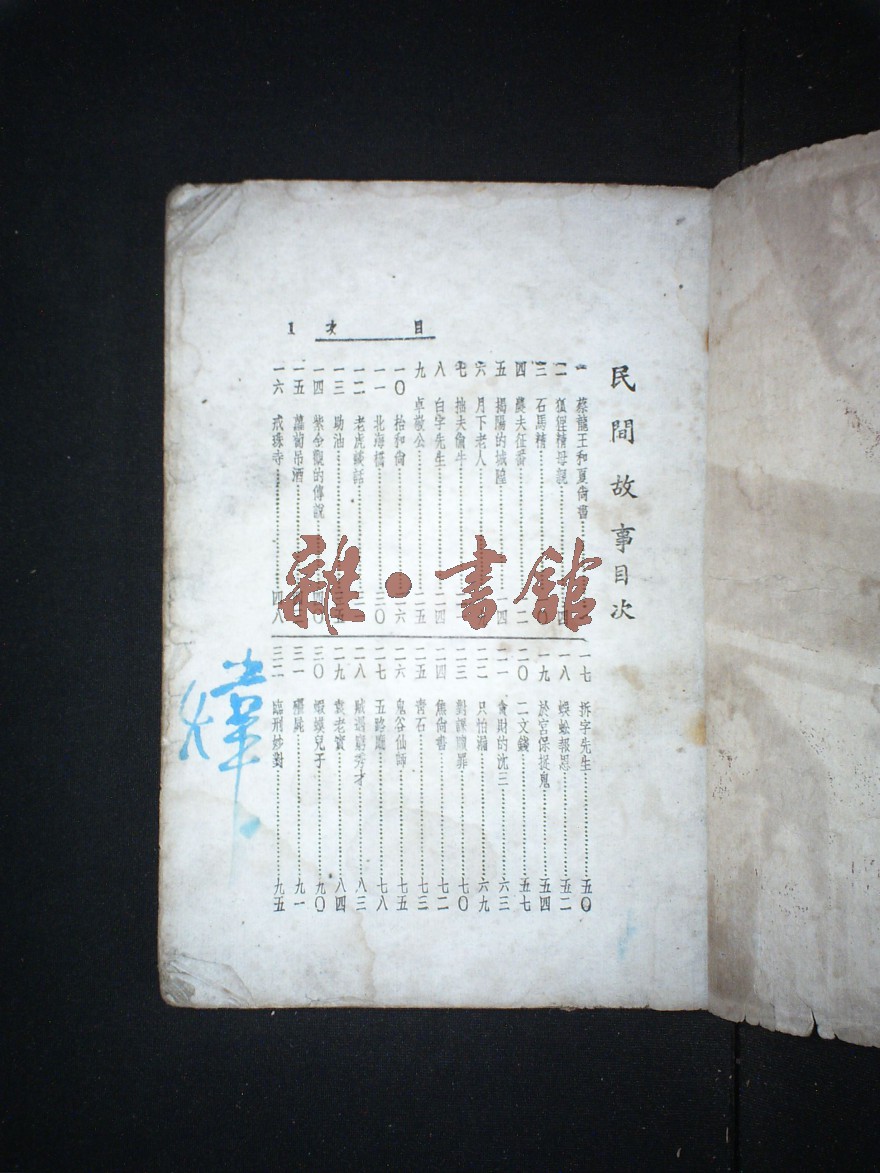 民間故事目次
目次 1
一 蔡龍王和夏尚書
二 狐狸精母親
三 石馬精
四 農夫征番
五 揭陽的城隍 一四
六 月下老人
七 拙夫偷牛
八 白字先生 二四
九 卓敬公 二五
一〇 抬和尚 二六
一一 北海橘 三〇
一二 老虎談話
一三 助油
一四 紫金觀的傳說 四〇
一五 蘿蔔吊酒
一六 戒珠寺 四八
一七 拆字先生 五〇
一八 蜈蚣報恩 五二
一九 於宮保捉鬼 五四
二〇 二文錢 五七
二一 貪財的沈三 六三
二二 只怕漏 六九
二三 對課贖罪 七〇
二四 焦尚書 七二
二五 青石 七三
二六 鬼谷仙師 七五
二七 五路廟 七八
二八 賊遇窮秀才 八三
二九 袁老實 八四
三〇 蝦蟆兒子 九〇
三一 殭屍 九一
三二 臨刑妙對 九五
雜·書館